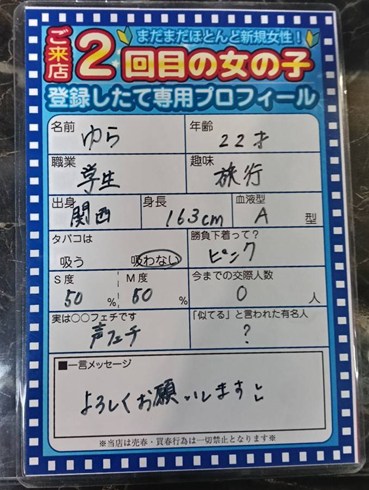 まだまだほとんど新規女性!
ご来店2回目の女の子
登録したて専用プロフィール
名前 ゆら 年齢 22才
職業 学生 趣味 旅行
出身 関西 身長 163cm 血液型 A 型
タバコは 吸う 吸わない 勝負下着って? ピンク
S度 50% M度 50% 今までの交際人数 0 人
実は○○フェチです 声フェチ 「似てる」と言われた有名人 ?
■一言メッセージ
よろしくお願いします
※当店は売春・買春行為は一切禁止となります※